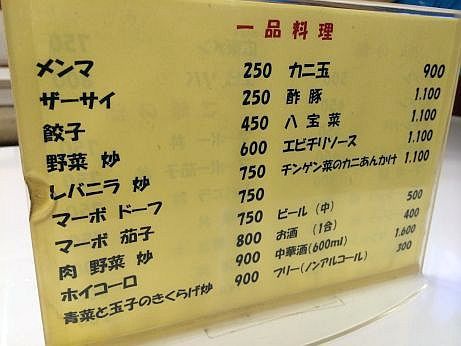 一品料理
メンマ 250
ザーサイ 250
餃子 450
野菜 炒 600
レバニラ 炒 750
マーボ ドーフ 750
マーボ 茄子 750
肉 野菜 炒 800
ホイコーロ 900
青菜と玉子のきくらげ炒 900
カニ玉 900
酢豚 1.100
八宝菜 1.100
エビチリソース 1.100
チンゲン菜のカニあんかけ 1.100
ビール(中) 500
お酒 (1合) 400
中華酒(600ml) 1.600
フリー(ノンアルコール) 300